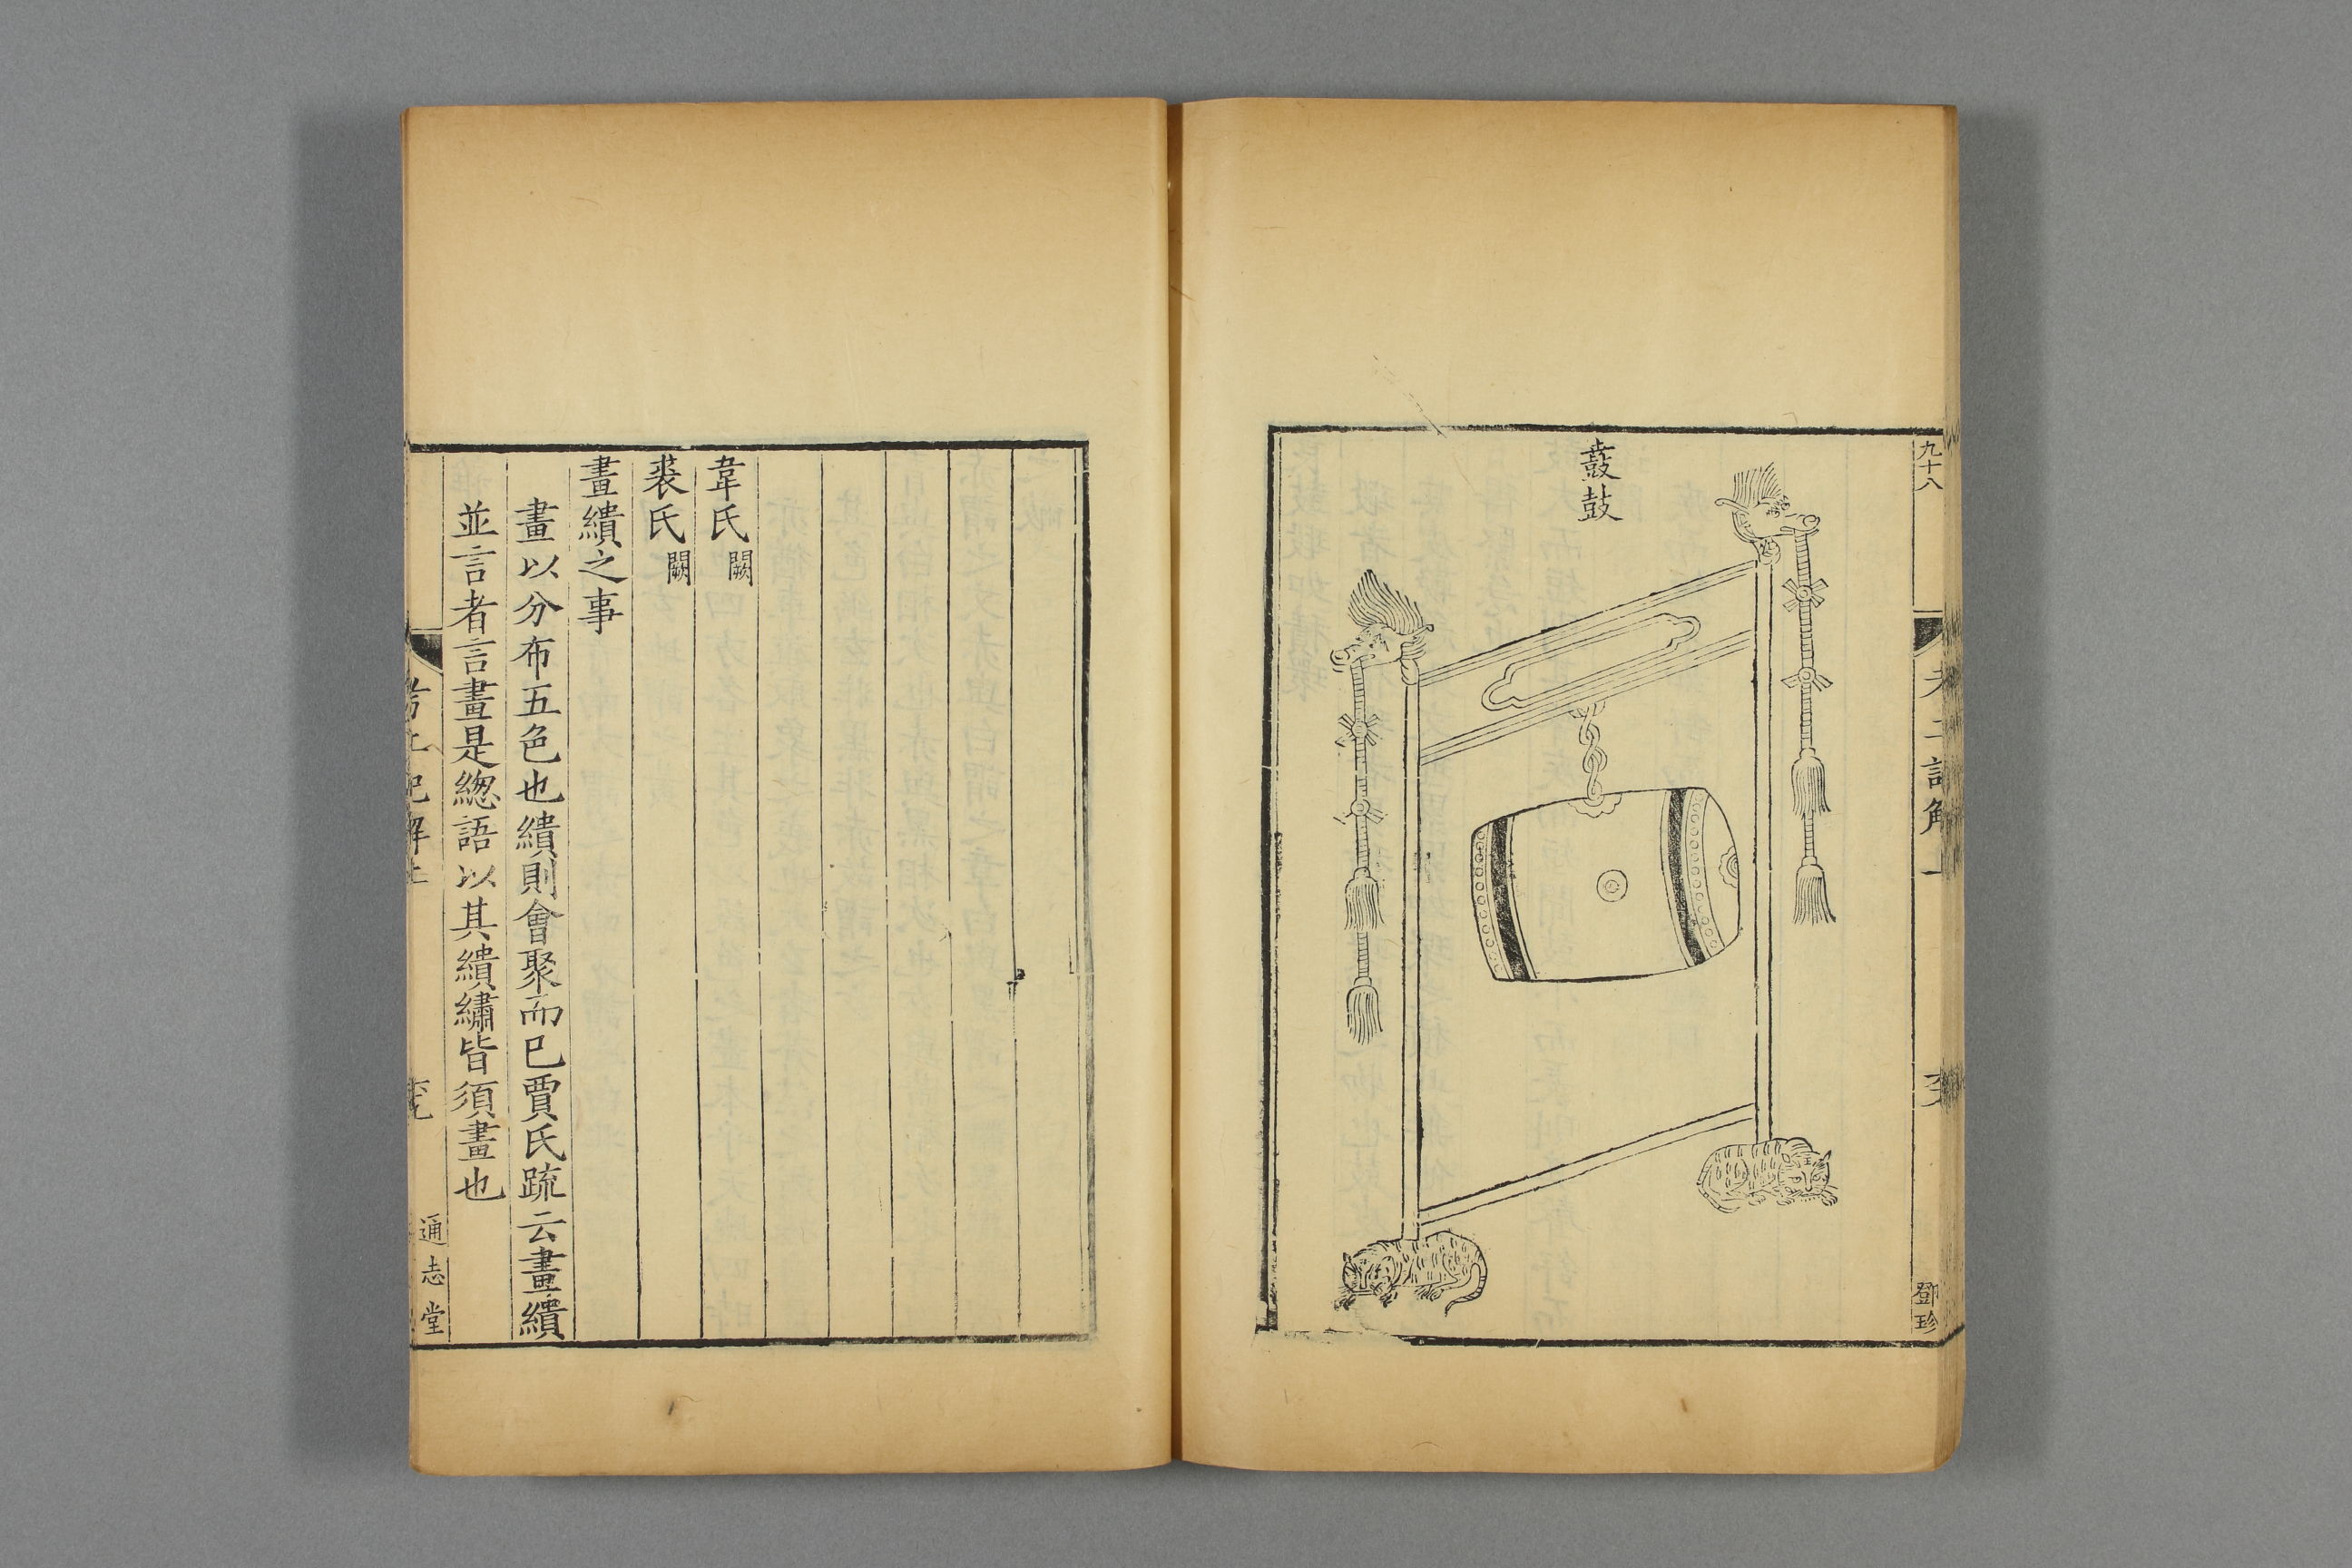 九十八
鄧珍
鼖鼓
韋氏闕
裘氏闕
畫繢之事
畫以分布五色也繢則會聚而巳賈氏疏云畫繢
並言者言畫是緫語以其繢繡皆須畫也
通志堂